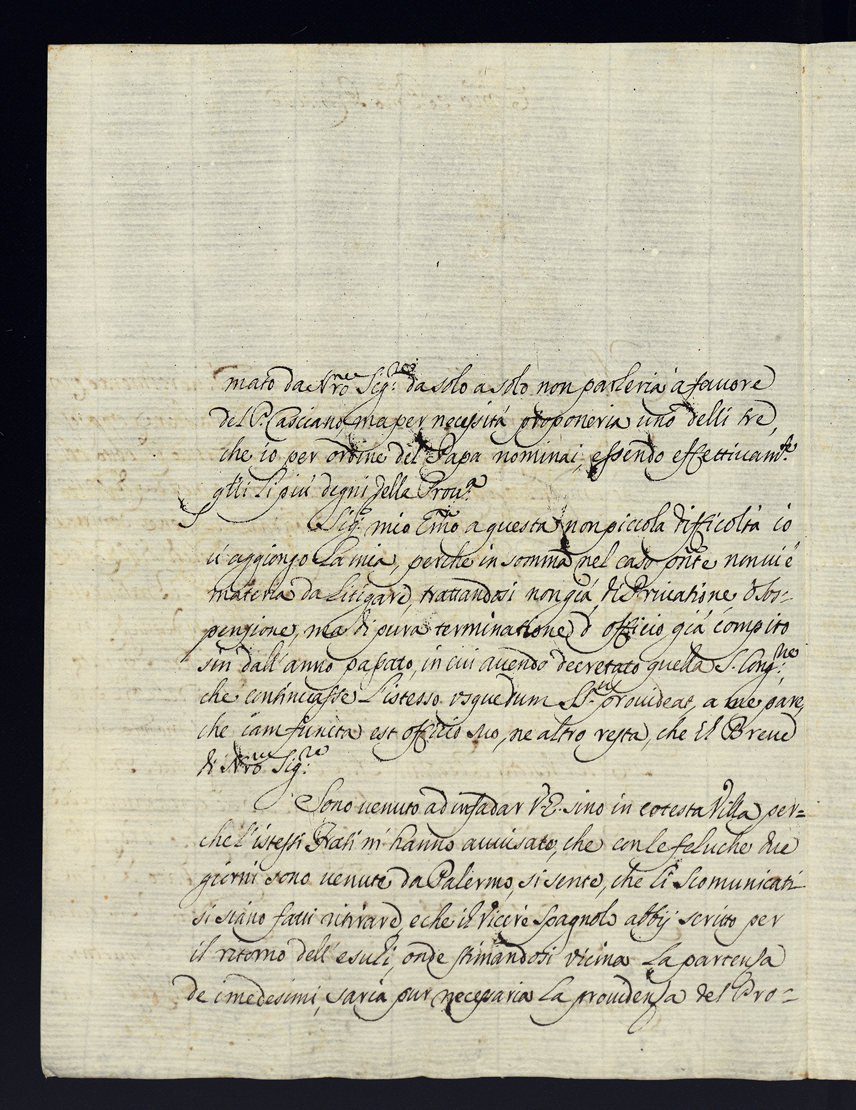 mato da Nro Sig.re da solo a solo non parleria à favore
del P. Casciano, ma per necessità proponeria uno delli tre,
che io per ordine del Papa nominai, essendo effettivam.te
q̃lli li più degni della Prov.a
Sig. mio Emõ a questa non piccola difficoltà io
v'aggiongo la mia, perche in somma nel caso pñte non vi è
materia da litigare, trattandosi non già di Privatione ò sos-
pensione, ma di pura terminatione d'officio già compito
sin dall'anno passato, in cui avendo decretato quella S. Cong.ne,
che continuasse l'istesso usquedum S. provideat, a me pare,
che iam functa est officio suo, ne altro resta, che il Breve
di Nro Sig.re
Sono venuto ad infadar V.E. sino in cotesta Villa, per=
che l'istessi Frati m'hanno avvisato, che con le feluche due
giorni sono venute da Palermo, si sente, che li Scomunicati
si siano fatti ritirare, e che il Vicerè Spagnolo abbij scritto per
il ritorno dell'esuli, onde stimandosi vicina la partenza
de i medesimi, saria pur necessaria la providenza del Pro=